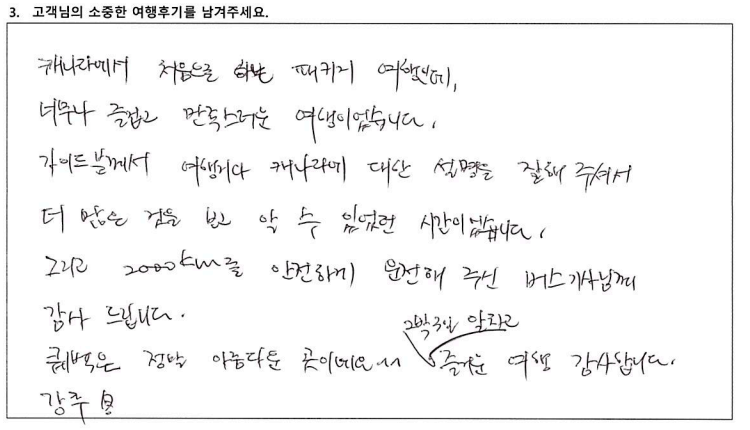 3. 고객님의 소중한 여행후기를 남겨주세요.
캐나다에서 처음으로 하는 패키지 여행인데,
너무나 즐겁고 만족스러운 여행이었습니다.
가이드분께서 여행지마다 캐나다에 대한 설명을 잘해 주셔서
더 많은 것을 보고 알 수 있었던 시간이었습니다.
그리고 2000km를 안전하게 운전해 주신 버스기사님께
감사 드립니다.
2박3일 알차고
퀘벡은 정말 아름다운 곳이네요^^ 즐거운 여행 감사합니다.
강추